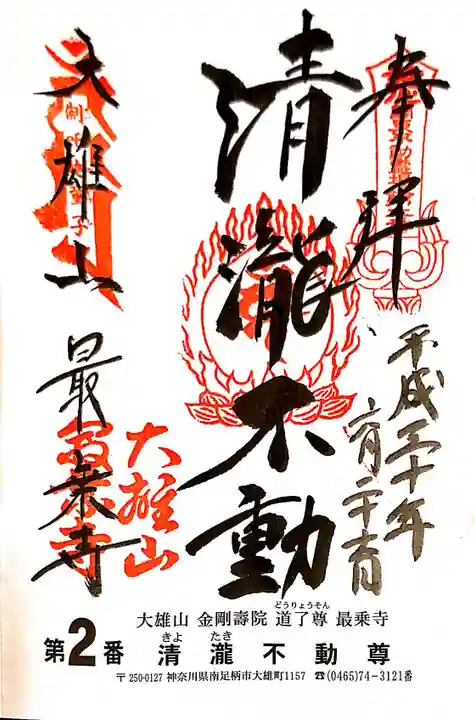 奉拝
平成三十年
清瀧不動
大雄山
最乗寺
大雄山
大雄山 金剛壽院 道了尊 最乗寺
どうりょうそん
第2番 清瀧不動尊
きよ たき
〒250-0127 神奈川県南足柄市大雄町1157 ☎(0465)74-3121番